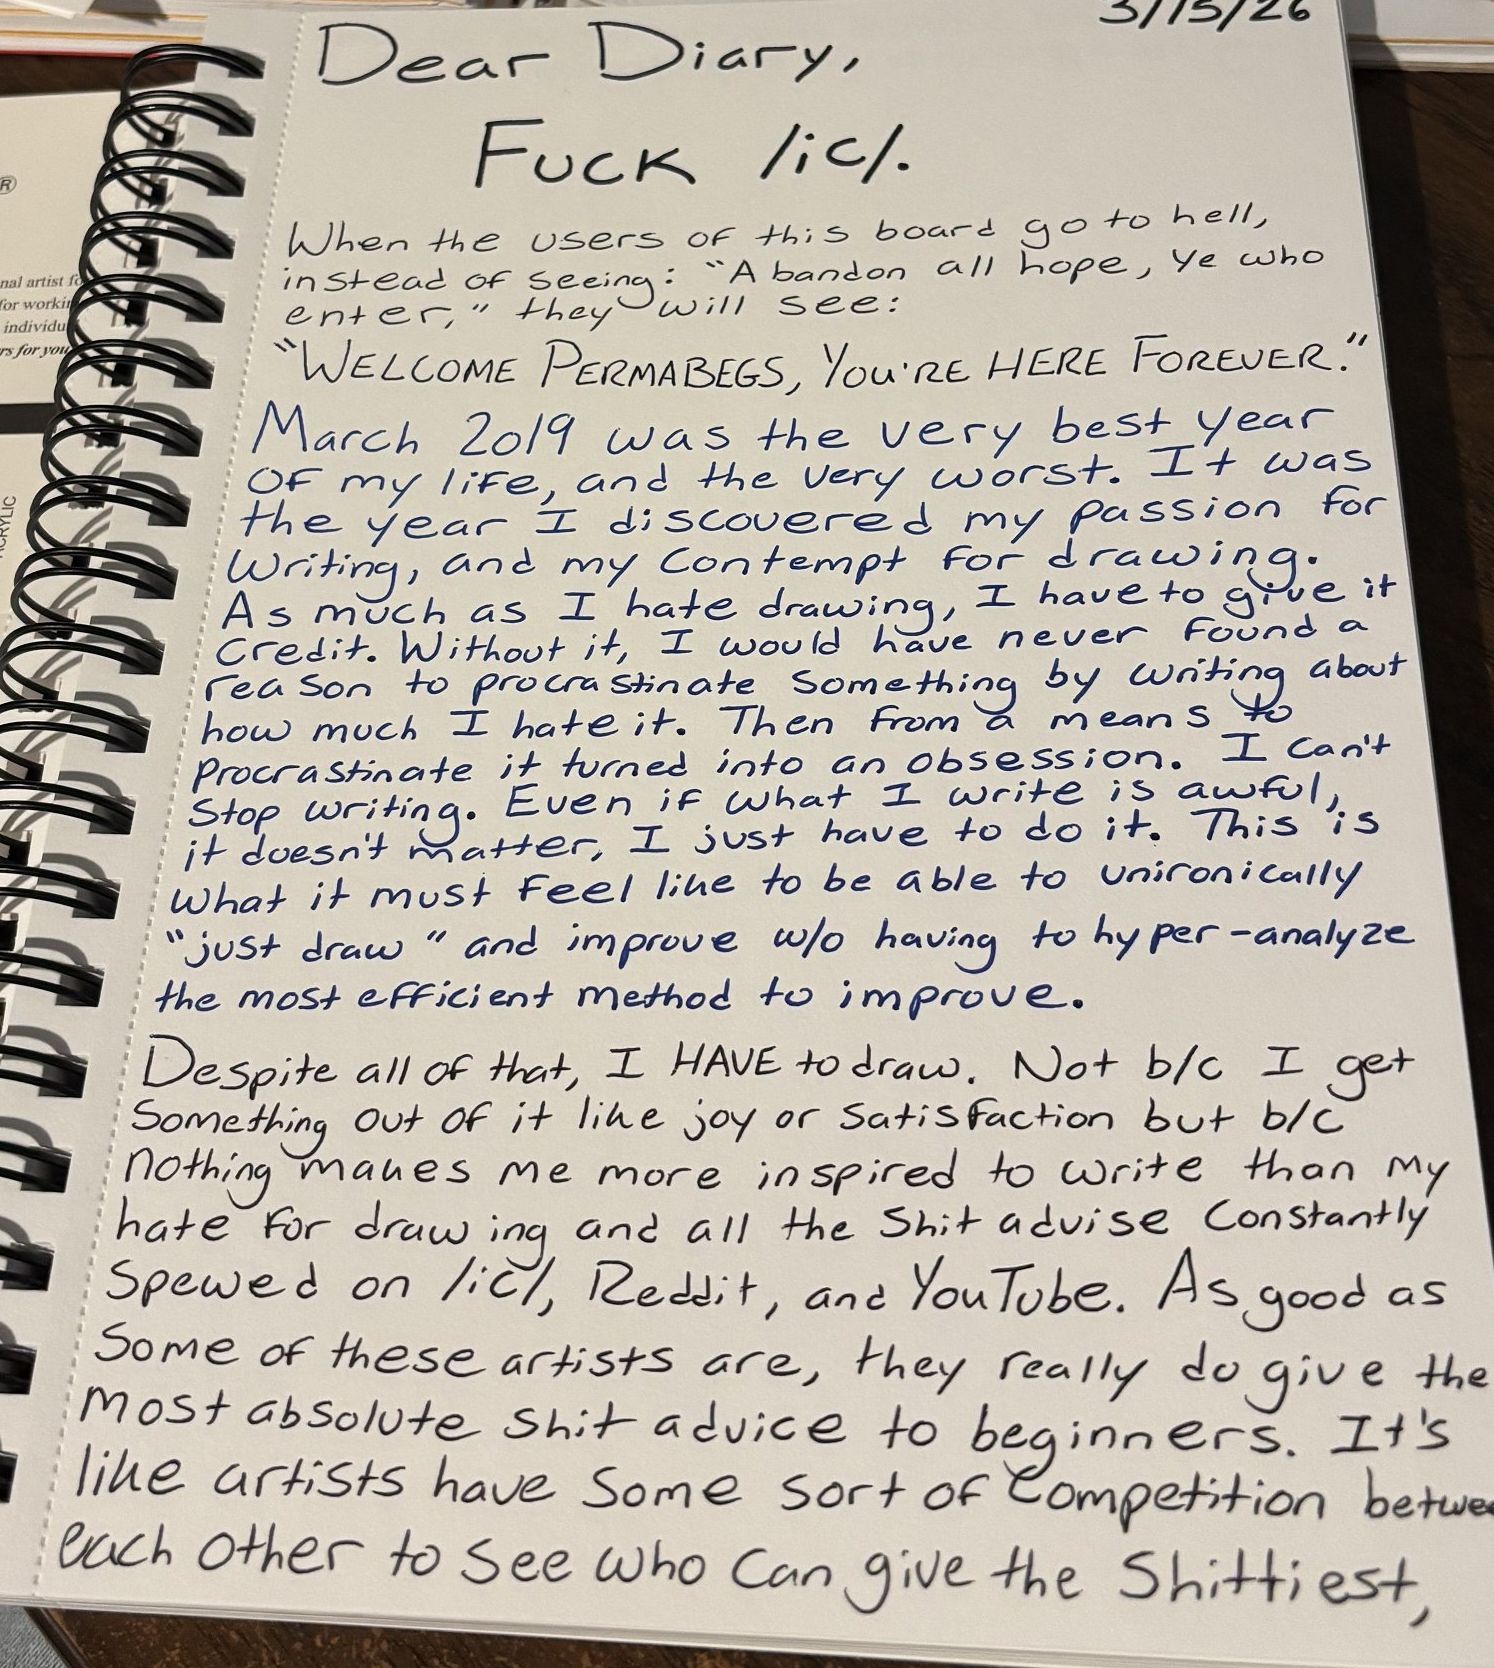 3/15/26
Dear Diary,
Fuck /ic/.
When the users of this board go to hell,
instead of seeing: "Abandon all hope, ye who
enter," they will see:
"WELCOME PERMABEGS, YOU'RE HERE FOREVER."
March 2019 was the very best year
of my life, and the very worst. It was
the year I discovered my passion for
writing, and my contempt for drawing.
As much as I hate drawing, I have to give it
credit. Without it, I would have never found a
reason to procrastinate something by writing about
how much I hate it. Then from a means to
procrastinate it turned into an obsession. I can't
stop writing. Even if what I write is awful,
it doesn't matter, I just have to do it. This is
what it must feel like to be able to unironically
"just draw" and improve w/o having to hyper-analyze
the most efficient method to improve.
Despite all of that, I HAVE to draw. Not b/c I get
something out of it like joy or satisfaction but b/c
nothing makes me more inspired to write than my
hate for drawing and all the shit advise constantly
spewed on /ic/, Reddit, and YouTube. As good as
some of these artists are, they really do give the
most absolute shit advice to beginners. It's
like artists have some sort of competition betwee
each other to see who can give the shittiest,
®
nal artist fo
for workin
individu
rs for you
ACRYLIC